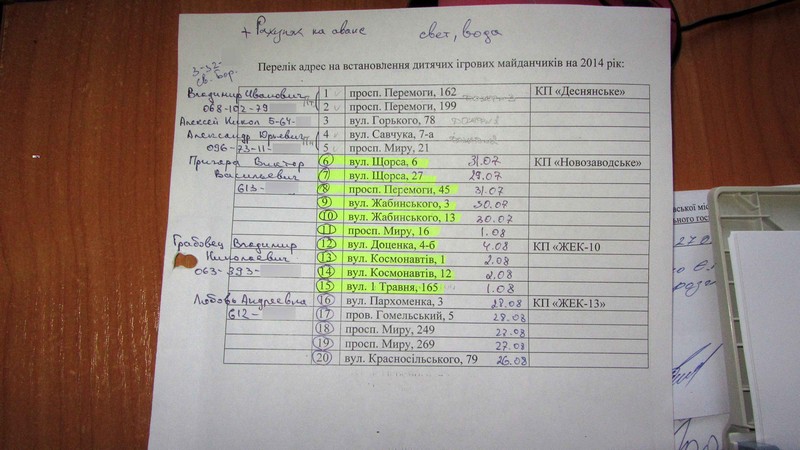 + Рахунок на аванс свет, вода
Перелік адрес на встановлення дитячих ігрових майданчиків на 2014 рік:
Владимир Иванович 1 просп. Перемоги, 162 КП «Деснянське»
068-102-79 2 просп. Перемоги, 199
Алексей Никол 5-64- 3 вул. Горького, 78
Александр Юрьевич 4 вул. Савчука, 7-а
096-73-11- 5 просп. Миру, 21
Пригара Виктор 6 вул. Щорса, 6 31.07 КП «Новозаводське»
Васильевич 7 вул. Щорса, 27 29.07
613- 8 просп. Перемоги, 45 31.07
9 вул. Жабинського, 3 30.07
10 вул. Жабинського, 13 30.07
11 просп. Миру, 16 1.08
Грабовец Владимир 12 вул. Доценка, 4-б 4.08 КП «ЖЕК-10
Николаевич 13 вул. Космонавтів, 1 2.08
063-393- 14 вул. Космонавтів, 12 2.08
15 вул. 1 Травня, 165 1.08
Любовь Андреевна 16 вул. Пархоменка, 3 28.08 КП «ЖЕК-13»
612- 17 пров. Гомельський, 5 28.08
18 просп. Миру, 249 27.08
19 просп. Миру, 269 27.08
20 вул. Красносільського, 79 26.08